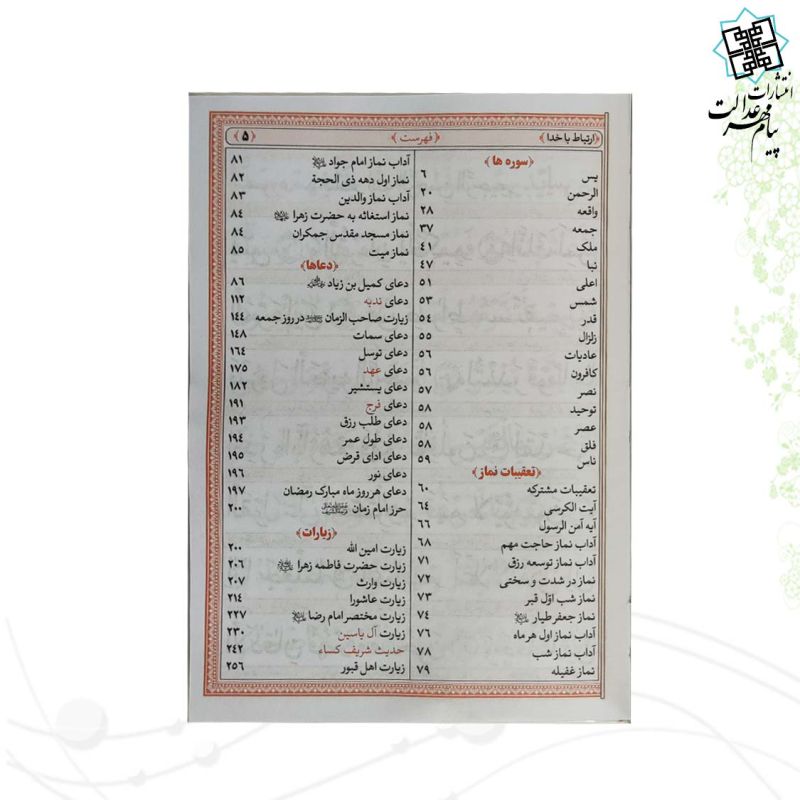 انتشارات
پیام مهر عدالت
﴿ارتباط با خدا﴾ ﴿فهرست﴾ ﴿۵﴾
﴿سوره ها﴾
یس ۶
الرحمن ۲۰
واقعه ۲۸
جمعه ۳۷
ملک ۴۱
نبا ۴۷
اعلی ۵۱
شمس ۵۳
قدر ۵۴
زلزال ۵۵
عادیات ۵۶
کافرون ۵۶
نصر ۵۷
توحید ۵۸
عصر ۵۸
فلق ۵۸
ناس ۵۹
﴿تعقیبات نماز﴾
تعقیبات مشترکه ۶۰
آیت الکرسی ۶۴
آیه آمن الرسول ۶۶
آداب نماز حاجت مهم ۶۸
آداب نماز توسعه رزق ۷۱
نماز در شدت و سختی ۷۲
نماز شب اوّل قبر ۷۳
نماز جعفر طیار ۷۴
آداب نماز اول هر ماه ۷۶
آداب نماز شب ۷۸
نماز غفیله ۷۹
آداب نماز امام جواد ۸۱
نماز اول دهه ذی الحجة ۸۲
آداب نماز والدین ۸۳
نماز استغاثه به حضرت زهرا ۸۴
نماز مسجد مقدس جمکران ۸۴
نماز میت ۸۵
﴿دعاها﴾
دعای کمیل بن زیاد ۸۶
دعای ندبه ۱۱۲
زیارت صاحب الزمان در روز جمعه ۱۴۴
دعای سمات ۱۴۸
دعای توسل ۱۶۴
دعای عهد ۱۷۵
دعای یستشیر ۱۸۲
دعای فرج ۱۹۱
دعای طلب رزق ۱۹۳
دعای طول عمر ۱۹۴
دعای ادای قرض ۱۹۵
دعای نور ۱۹۶
دعای هر روز ماه مبارک رمضان ۱۹۷
حرز امام زمان ۲۰۰
﴿زیارات﴾
زیارت امین الله ۲۰۰
زیارت حضرت فاطمه زهرا ۲۰۶
زیارت وارث ۲۰۷
زیارت عاشورا ۲۱۴
زیارت مختصر امام رضا ۲۲۷
زیارت آل یاسین ۲۳۰
حدیث شریف کساء ۲۴۲
زیارت اهل قبور ۲۵۶